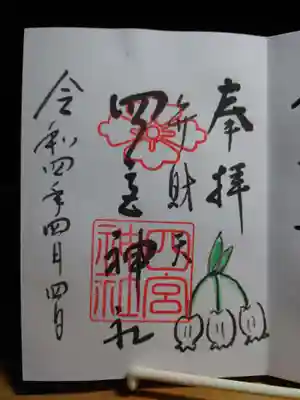 奉拝
弁財天
四宮神社
四宮神社
令和四年四月四日